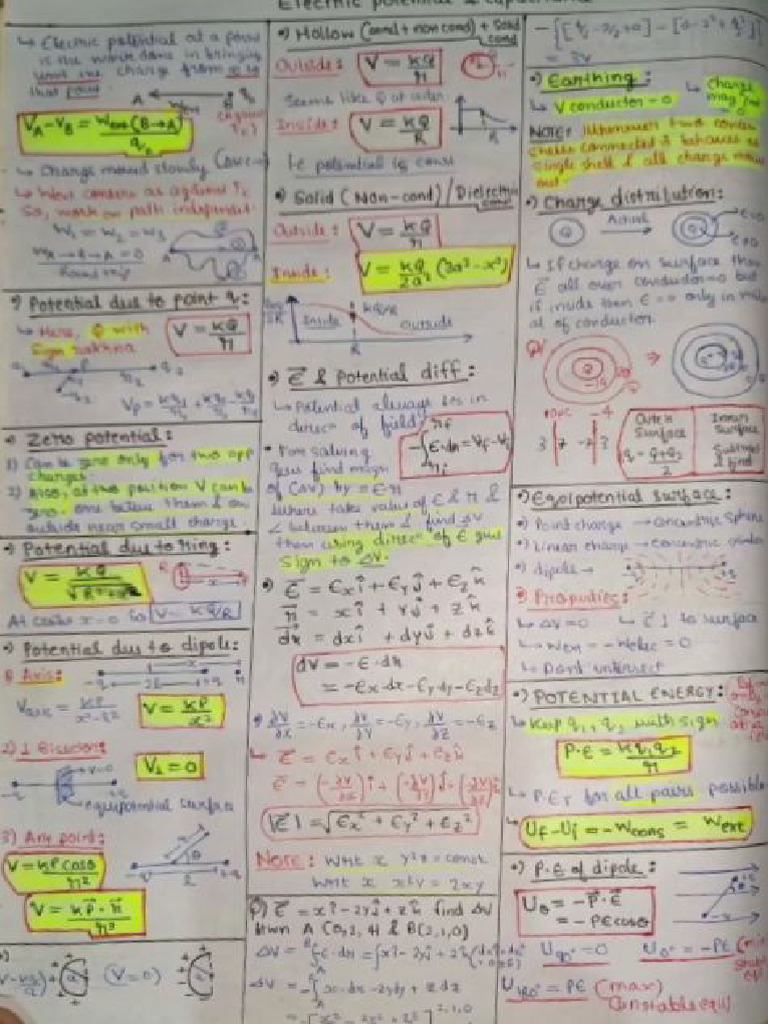 Electric potential & capacitance
↳ Electric potential at a point
is the work done in bringing
unit +ve charge from ∞ to
that point.
V_A - V_B = W_ext (B→A) / q₀
- Charge moved slowly
So, work on path independent
W₁ = W₂ = W₃
W_A→B→A = 0
Round trip
•) Potential due to point q:
↳ Here, Q with
sign rakhna
V = KQ/r
V_P = Kq₁/r₁ + Kq₂/r₂ - Kq₃/r₃
• Zero potential:
1) Can be zero only for two opp
charges.
2) Also, at two position V can be
zero. one between them & one
outside near small charge.
•) Potential due to Ring:
V = KQ/√R²+x²
At center x=0 so V = KQ/R
•) Potential due to dipole:
1) Axis:
V_axis = KP/x²-l²
V = KP/x²
2) ⊥ Bisector:
V⊥ = 0
equipotential surface
3) Any point:
V = KP cosθ/r²
V = K P⃗·r⃗/r³
(V=0)
•) Hollow (cond + non cond) + Solid
cond
Outside: V = KQ/r
Seems like Q at center
Inside: V = KQ/R
i.e potential is const
•) Solid (Non-cond)/Dielectric
Outside: V = KQ/r
Inside: V = KQ/2a³ (3a²-x²)
Inside
Outside
R
•) E⃗ & Potential diff:
↳ Potential always dec in
direcn of field
-∫E·dr = V_f - V_i
• For solving
ques find magn
of (ΔV) by = E·r
where take value of E & r &
∠ between them & find ΔV
then using direcn of E give
sign to ΔV.
•) E⃗ = E_x î + E_y ĵ + E_z k̂
r⃗ = xî + yĵ + zk̂
dr⃗ = dxî + dyĵ + dzk̂
dV = -E·dr
= -E_x dx - E_y dy - E_z dz
∂V/∂x = -E_x, ∂V/∂y = -E_y, ∂V/∂z = -E_z
↳ E⃗ = E_x î + E_y ĵ + E_z k̂
E⃗ = (-∂V/∂x)î + (-∂V/∂y)ĵ + (-∂V/∂z)k̂
|E⃗| = √E_x² + E_y² + E_z²
Note: Wrt x y²z = const
Wrt x x²y = 2xy
Q) E⃗ = xî - 2yĵ + zk̂ find ΔV
btwn A (0,2,4) & B(2,1,0)
= 3V
•) Earthing:
↳ V conductor = 0
↳ Charge
may ≠ 0
NOTE: Whenever two conc
shells connected it behaves as
single shell & all charge move
out
•) Charge distribution:
Actual
↳ If charge on surface then
E⃗ all over conductor = 0 but
if inside then E = 0 only in
of conductor.
10μC -4
3 | 7 -7 | 3
Outer
Surface
q = Q₁+Q₂/2
Inner
Surface
Subtract
& find
•) Equipotential surface:
•) Point charge → concentric sphere
•) Linear charge → concentric cylinder
•) dipole →
•) Properties:
↳ ΔV = 0
↳ E⃗ ⊥ to surface
↳ W_ext = -W_elec = 0
↳ Dont intersect
•) POTENTIAL ENERGY:
↳ Keep q₁, q₂ with sign
P.E = Kq₁q₂/r
↳ P.E for all pairs possible
↳ U_f - U_i = -W_cons = W_ext
•) P.E of dipole:
U_θ = -P⃗·E⃗
= -PE cosθ
U_90° = 0 U_0° = -PE
U_180° = PE (max)
(unstable equi)